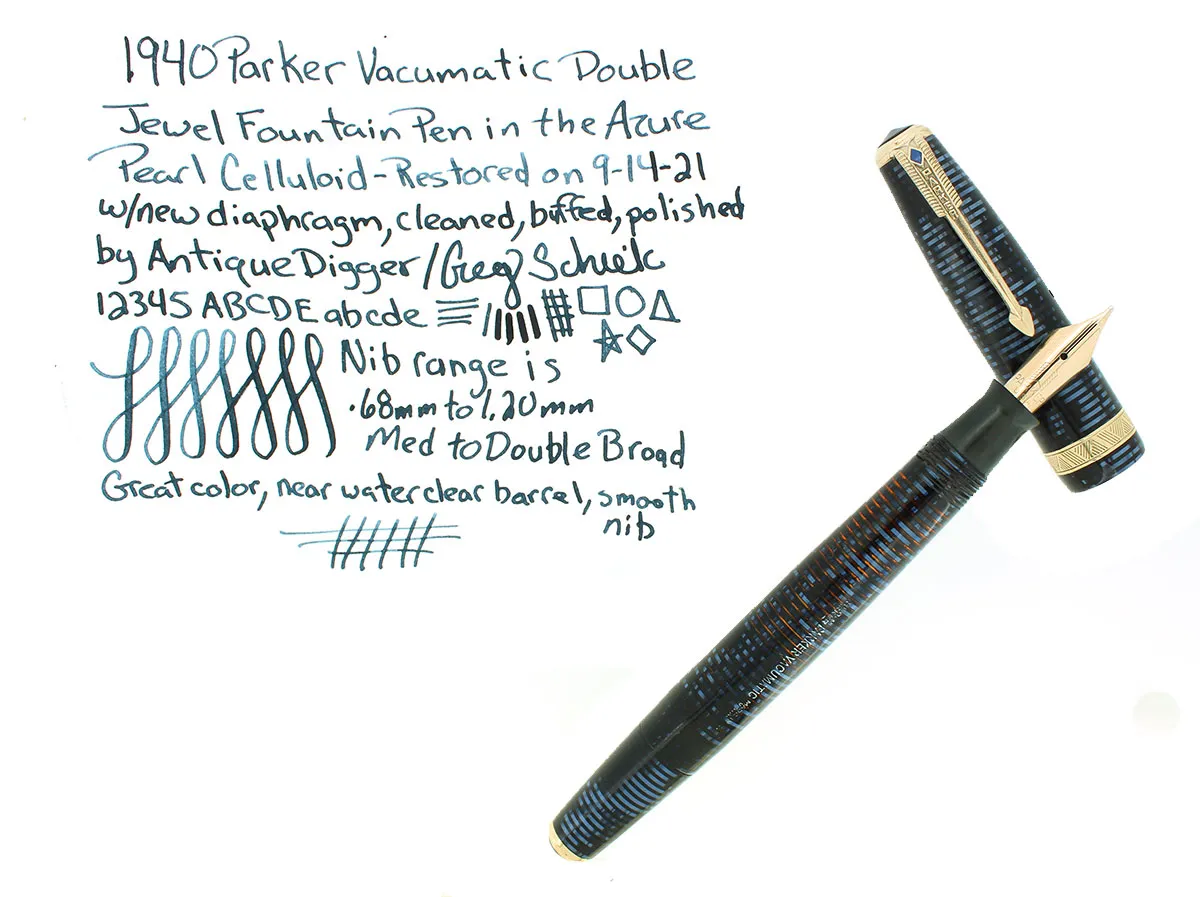 1940 Parker Vacumatic Double
Jewel Fountain Pen in the Azure
Pearl Celluloid - Restored on 9-14-21
w/new diaphragm, cleaned, buffed, polished
by Antique Digger / Greg
12345 ABCDE abcde
Nib range is
.68mm to 1.20mm
Med to Double Broad
Great color, near water clear barrel, smooth
nib
PARKER
PARKER VACUMATIC